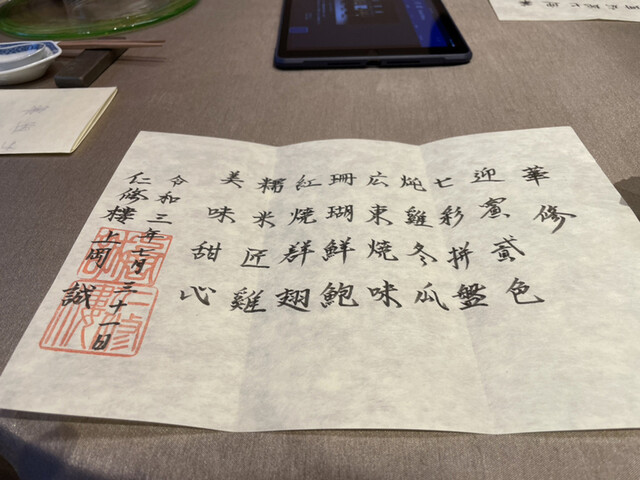 華修
迎賓貳色
七彩拼盤
炖雞冬瓜
広東焼味
珊瑚鮮鮑
紅焼群翅
糯米匠雞
美味甜心
令和三年七月三十一日
仁修樓 上岡 誠